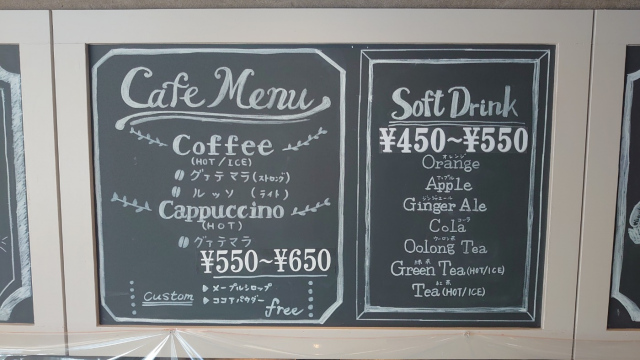 Cafe Menu
Coffee
(HOT/ICE)
グァテマラ(ストロング)
ルッソ (ライト)
Cappuccino
(HOT)
グァテマラ
¥550~¥650
Custom
▶メープルシロップ
▶ココアパウダー
free
Soft Drink
¥450~¥550
オレンジ
Orange
アップル
Apple
ジンジャエール
Ginger Ale
コーラ
Cola
ウーロン茶
Oolong Tea
緑茶
Green Tea(HOT/ICE)
紅茶
Tea(HOT/ICE)